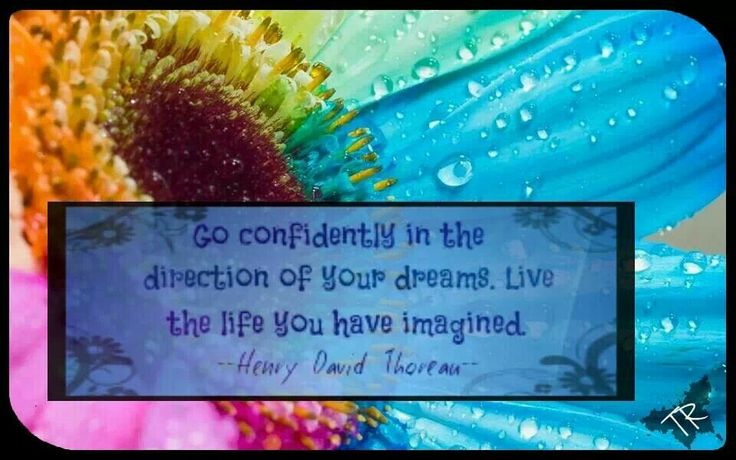 Go confidently in the
direction of your dreams. Live
the life you have imagined.
--Henry David Thoreau--
TR